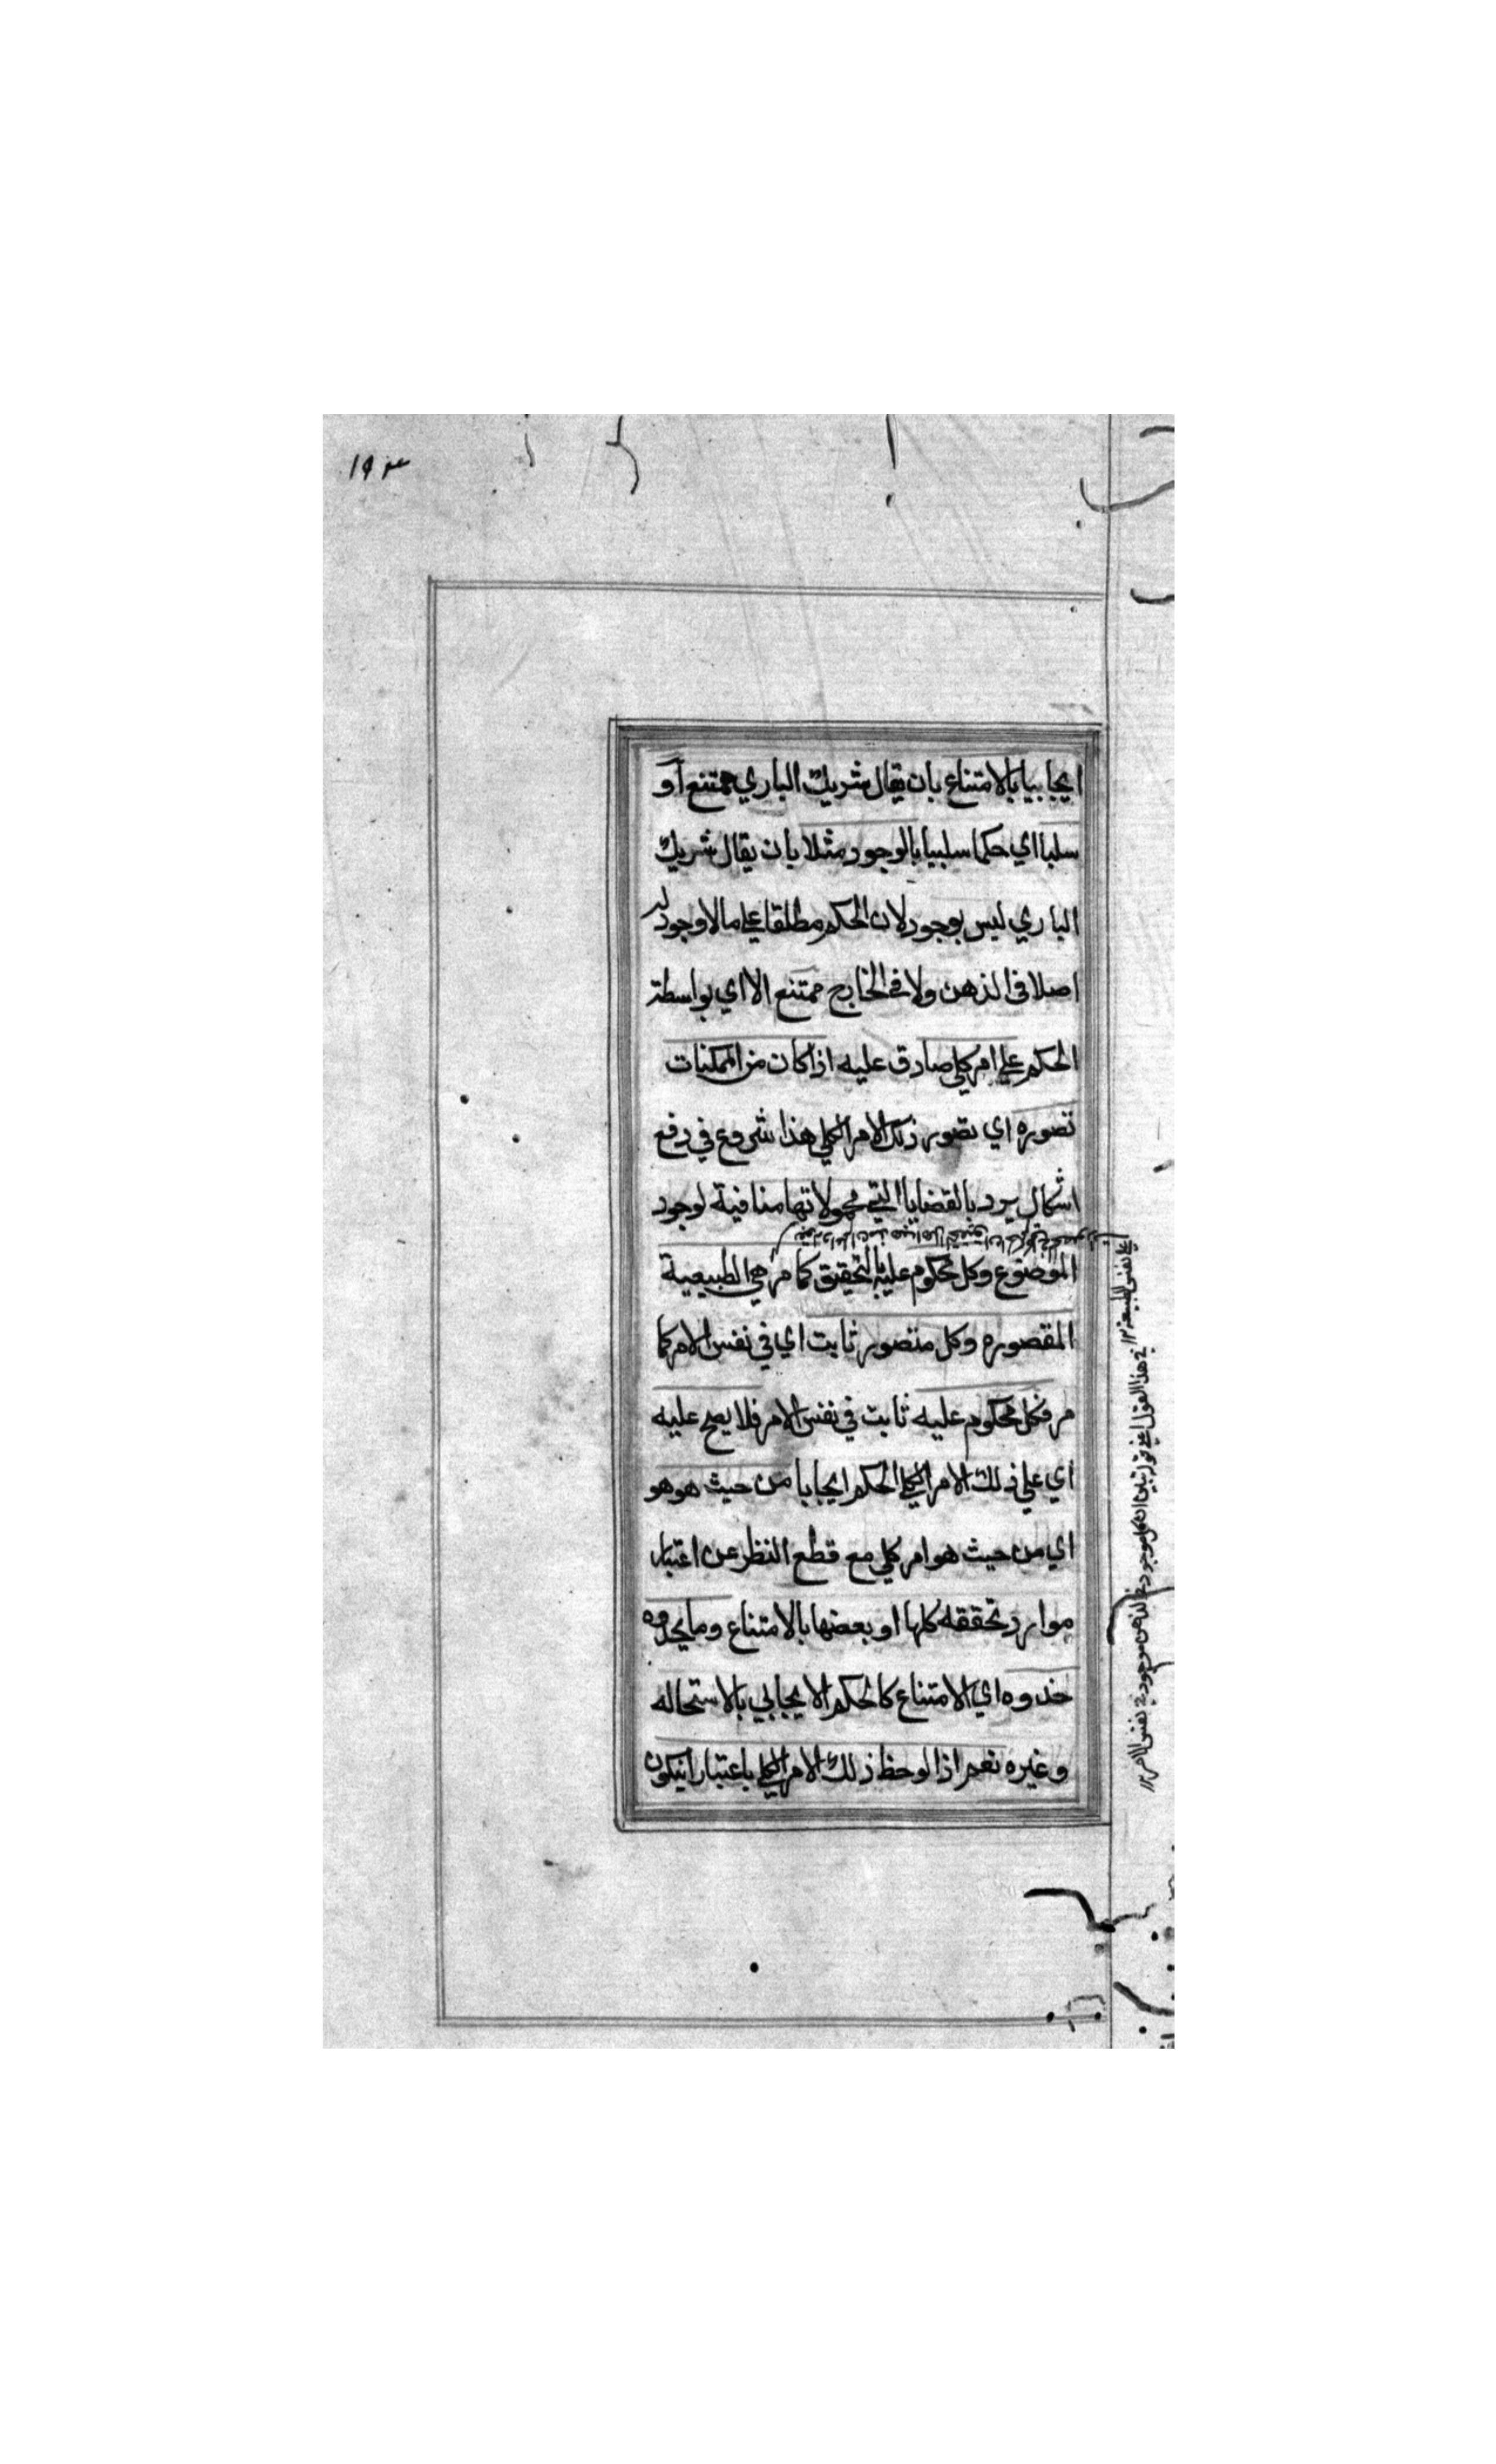 ۱۹۴
ايجابيا بالامتناع بان يقال شريك الباري ممتنع او
سلبا اي حكما سلبيا بالوجود مثلا بان يقال شريك
الباري ليس بوجود لان الحكم مطلقا على ما لا وجود له
اصلا في الذهن ولا في الخارج ممتنع الا اي بواسطة
الحكم على امر كلي صادق عليه اذا كان من الممكنات
تصوره اي تصور ذلك الامر الكلي هذا شروع في دفع
اشكال يرد بالقضايا التي محمولاتها منافية لوجود
الموضوع وكل محكوم عليه بالتحقيق كما مر هي الطبيعية
المقصوره وكل متصور ثابت اي في نفس الامر كما
مر فكل محكوم عليه ثابت في نفس الامر فلا يصح عليه
اي على ذلك الامر الكلي الحكم ايجابا من حيث هو هو
اي من حيث هو امر كلي مع قطع النظر عن اعتبار
موارد تحققه كلها او بعضها بالامتناع وما يحذوه
حذوه اي الامتناع كالحكم الايجابي بالاستحاله
وغيره نعم اذا لوحظ ذلك الامر الكلي باعتبار انيكون
اي نفس الطبيعة ۱۲
في هذا القول اعني قوله تبين ان كل موجود في الذهن موجود في نفس الامر ۱۲